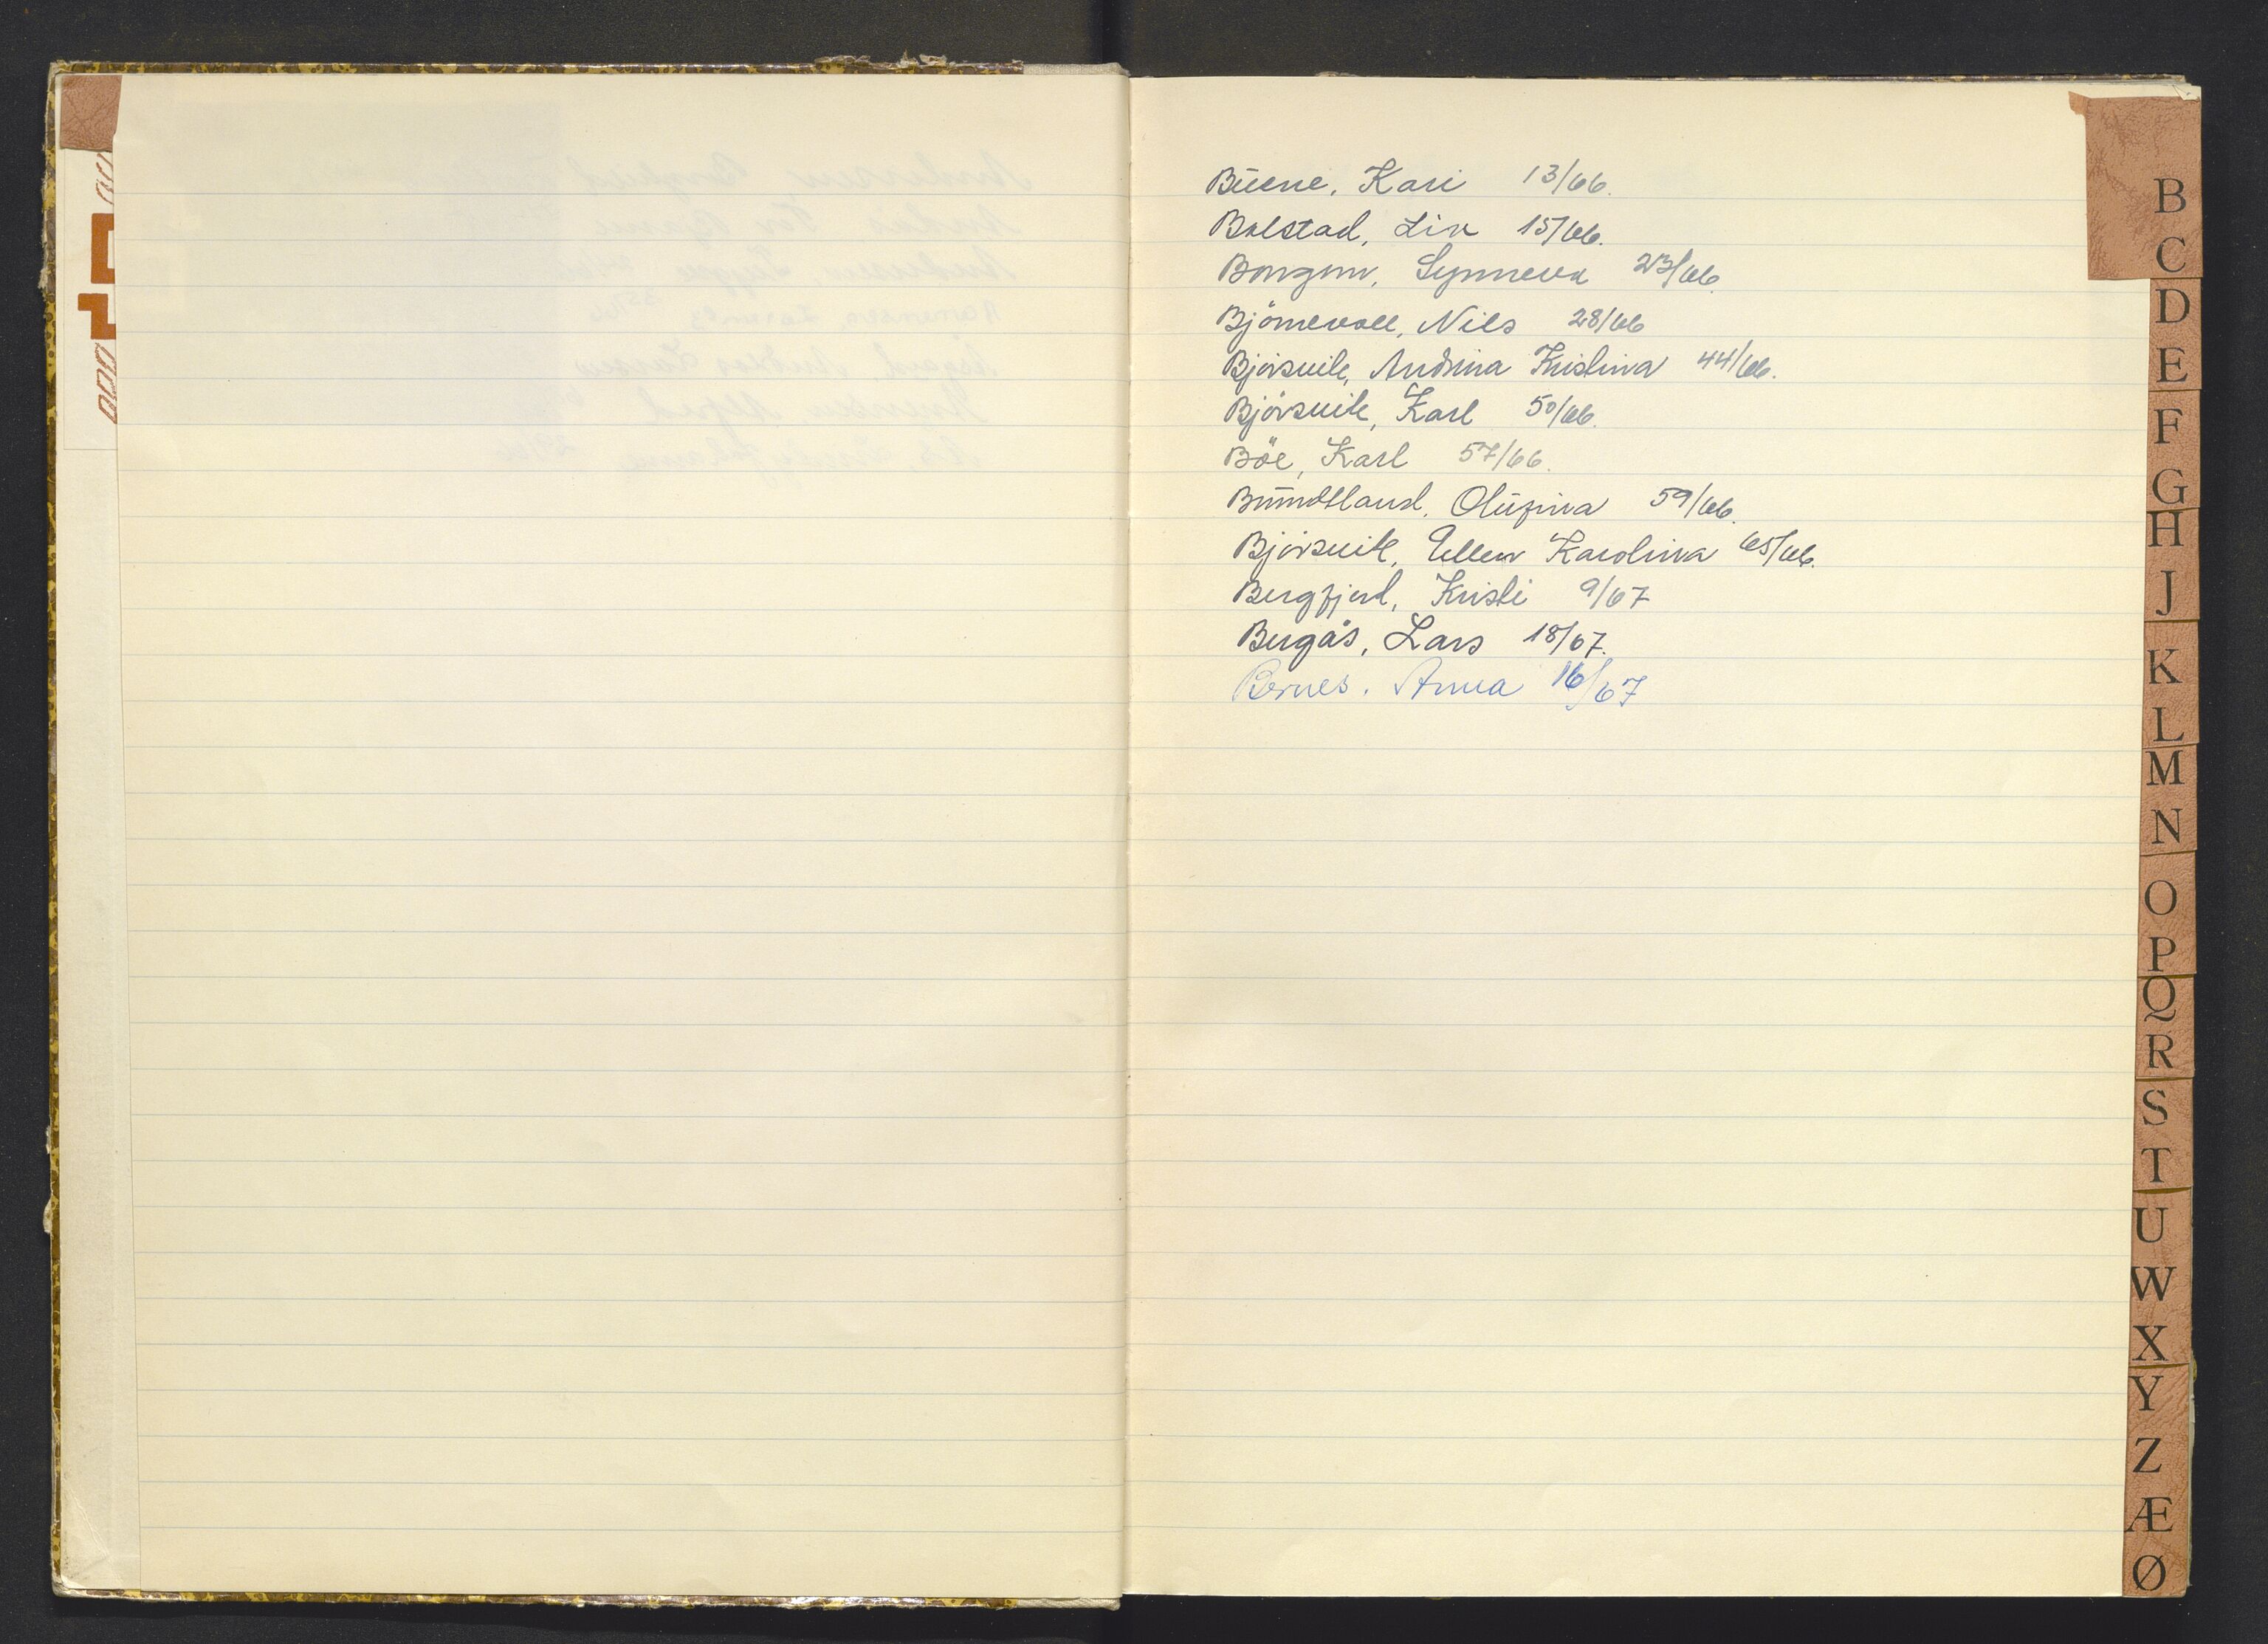 Buene, Kari 13/66.
Bolstad, Liv 15/66.
Synneva 23/66.
Björnevoll, Nils 28/66
Bjørsvik, Andrina Kristina 44/66.
Björsvik, Karl 50/66.
Böe, Karl 57/66.
Olufina 59/66.
Bjørsvik, Ellen Karolina 65/66.
Bergfjord, Kristi 9/67
Bergås, Lars 18/67.
Bernes. Anna 16/67
B
C
D
E
F
G
H
J
K
L
M
N
O
P
Q
R
S
T
U
W
X
Y
Z
Æ
Ø